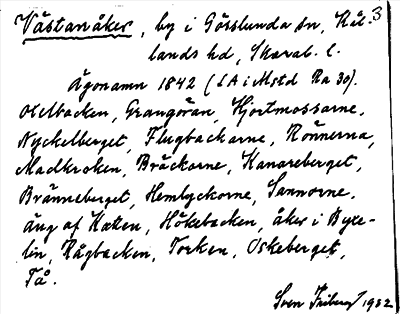 Västanåker, by i Gösslunda sn, Kål- 3
lands hd, Skarab. l.
Ägonamn 1842 (LA i Mstd Ra 30).
Oxelbacken, Grangöran, Hjortmossarne,
Nyckelberget, Flugbackarne, Rönnerna,
Madkroken, Bräckorne, Kanareberget,
Bränneberget, Hemlyckorne, Sannorne.
äng af Katten, Hökebacken, åker i Byxe-
lin, Rågbacken, Torken, Oskeberget,
Tå.
Sven Friberg 1932